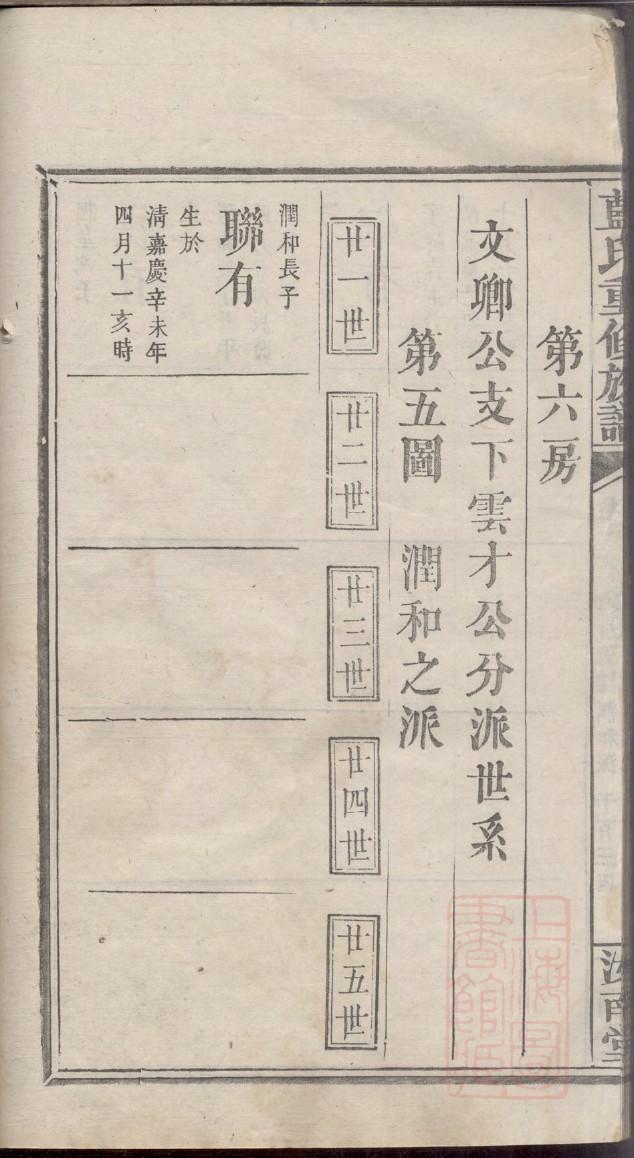 藍氏重修族譜
汝南堂
第六房
文卿公支下雲才公分派世系
第五圖 潤和之派
廿一世
廿二世
廿三世
廿四世
廿五世
潤和長子
聯有
生於
清嘉慶辛未年
四月十一亥時
上海圖書館藏